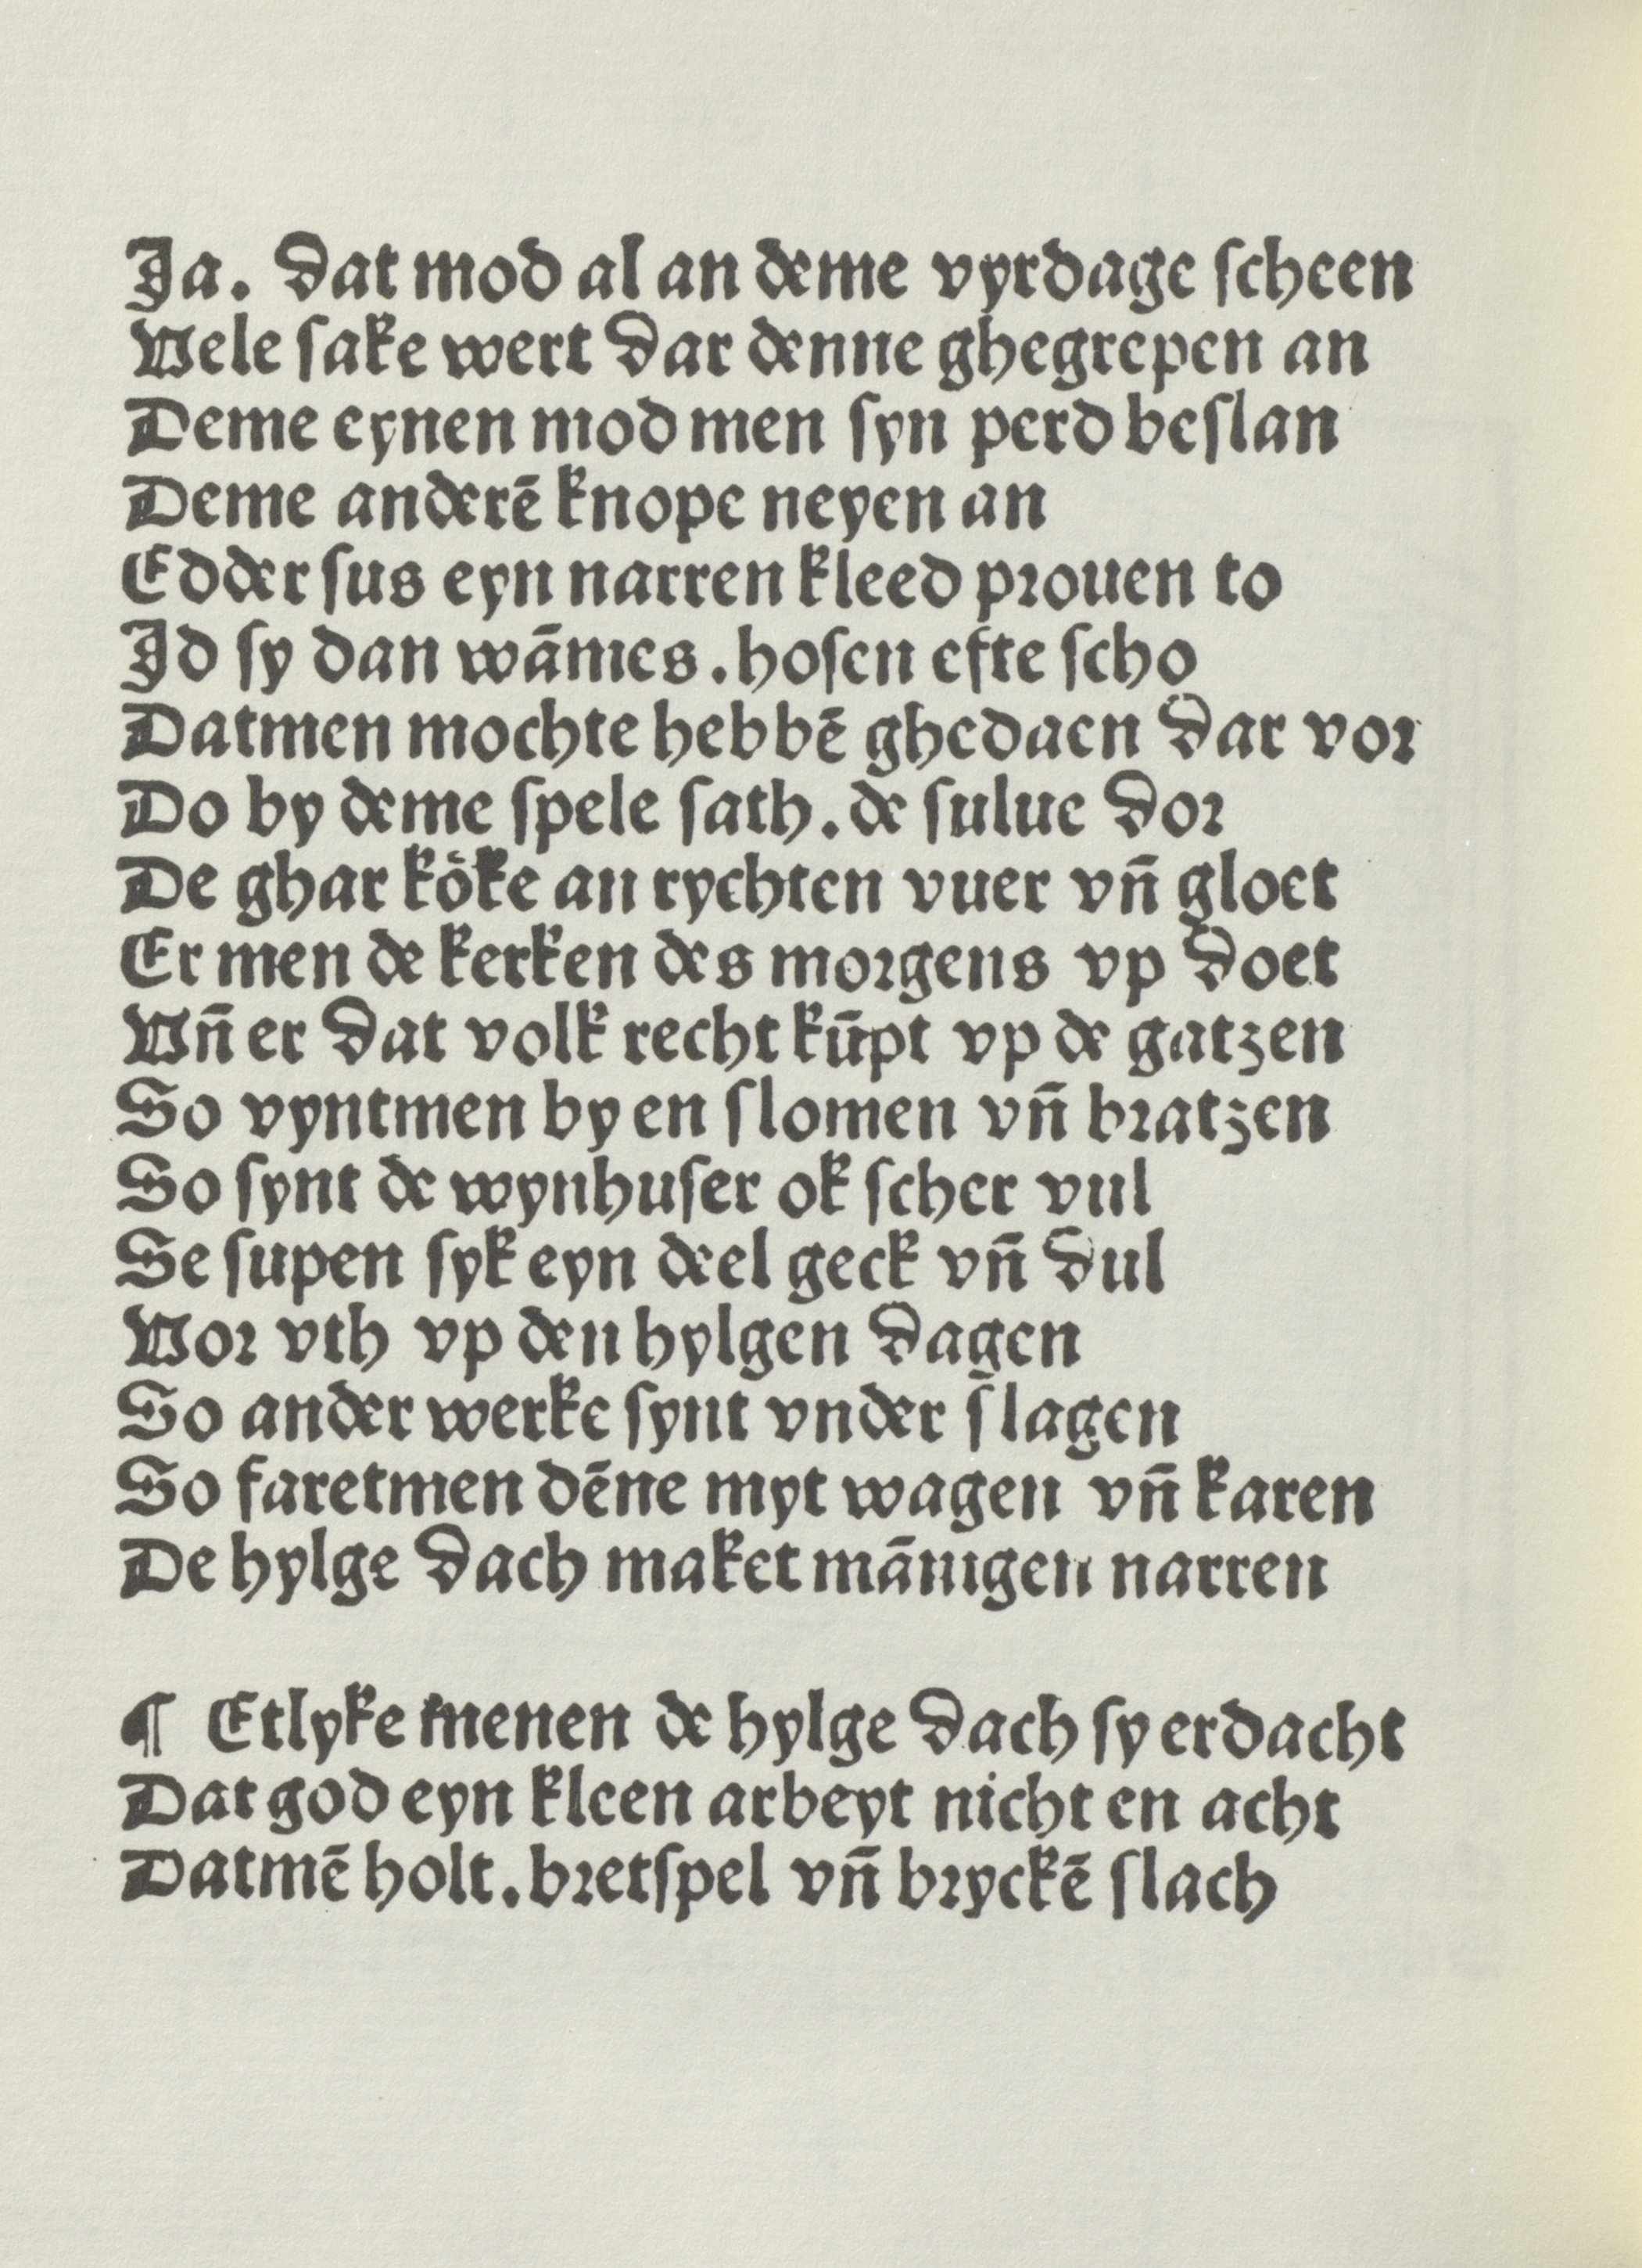 Ja. dat mod al an deme vyrdage scheen
Vele sake wert dar denne ghegrepen an
Deme eynen mod men syn perd beslan
Deme anderē knope neyen an
Edder sus eyn narren kleed prouen to
Jd sy dan wāmes. hosen efte scho
Datmen mochte hebbē ghedaen dar vor
Do by deme spele sath. de sulue dor
De ghar kȯke an rychten vuer vn̄ gloet
Er men de kerken des morgens vp doet
Vn̄ er dat volk recht kūpt vp de gatzen
So vyntmen by en slomen vn̄ bratzen
So synt de wynhuser ok scher vul
Se supen syk eyn deel geck vn̄ dul
Vor vth vp den hylgen dagen
So ander werke synt vnder slagen
So faretmen dēne myt wagen vn̄ karen
De hylge dach maket mānigen narren
¶ Etlyke menen de hylge dach sy erdacht
Dat god eyn kleen arbeyt nicht en acht
Datmē holt. bretspel vn̄ bryckē slach